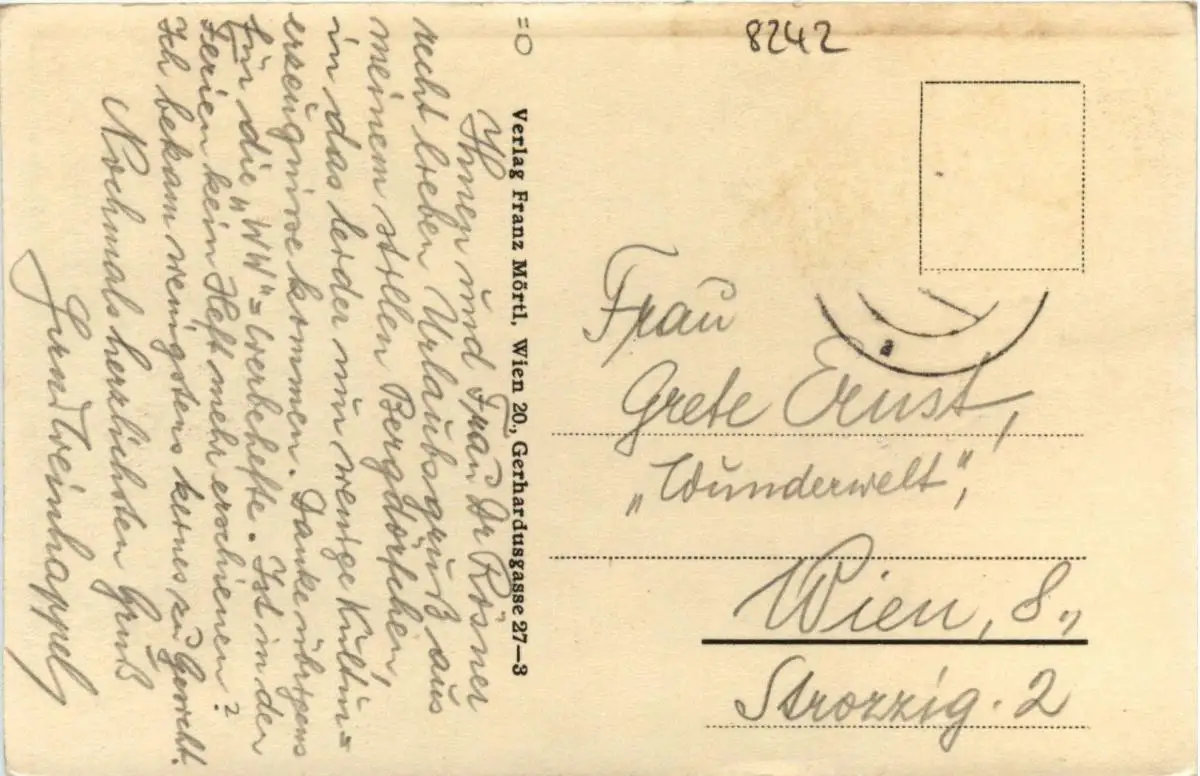 8242
Ihnen und Frau Dr Rösner
recht lieben Urlaubsgruß aus
meinem stillen Bergdörfchen,
in das leider nur wenige Kultur=
erzeugnisse kommen. Danke übrigens
für die „WW"=Werbehefte. Ist in den
Ferien kein Heft mehr erschienen?
Ich bekam wenigstens keines zu
Nochmals herzlichsten Gruß
Weinhappel
Verlag Franz Mörtl, Wien 20., Gerhardusgasse 27—3
Frau
Grete Ernst,
„Wunderwelt",
Wien, 8.,
Strozzig. 2
a